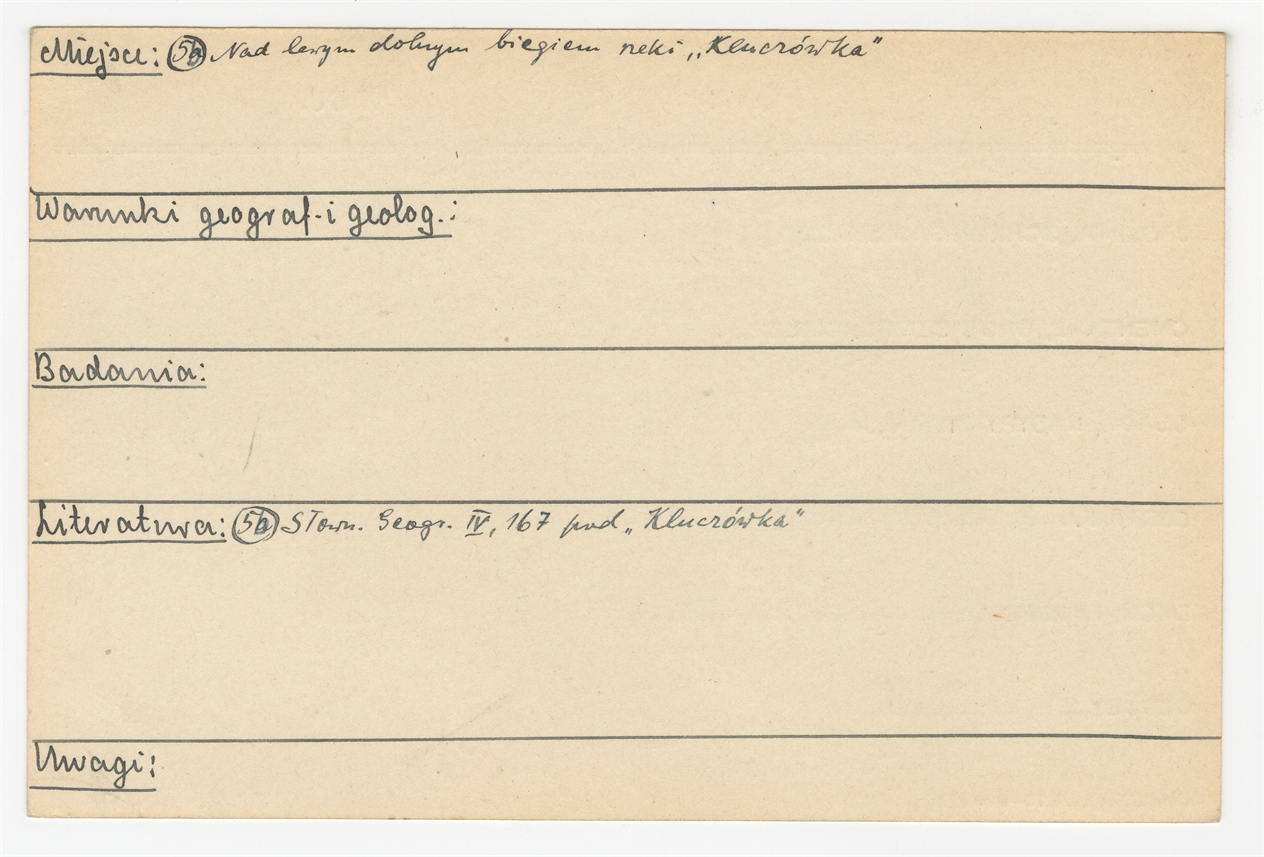 Miejsce: 5b Nad lewym dolnym biegiem rzeki „Kluczówka"
Warunki geograf. i geolog.:
Badania:
Literatura: 5b Słown. Geogr. IV, 167 pod „Kluczówka"
Uwagi: